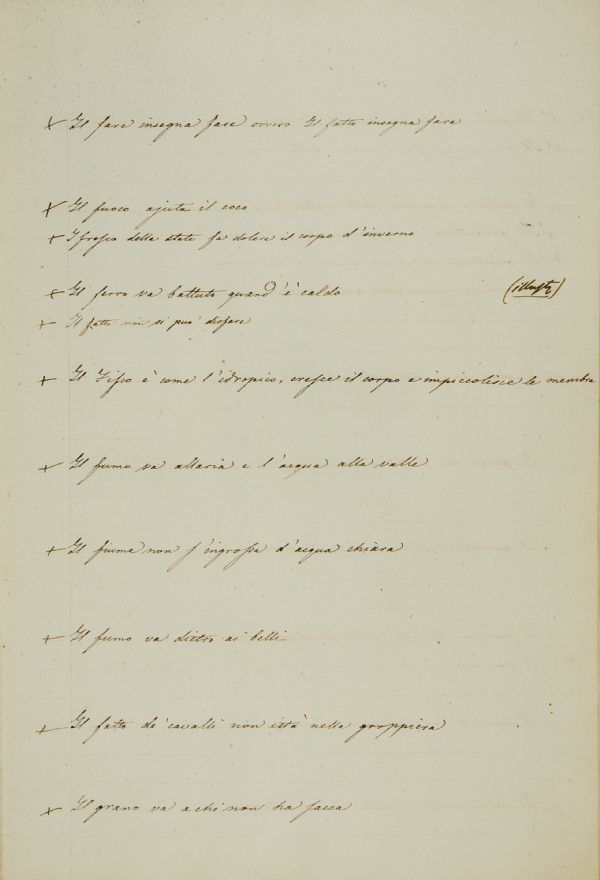 + Il fare insegna fare ovvero Il fatto insegna fare
+ Il fuoco ajuta il coco
+ I freſco della state fa dolere il corpo d'inverno
+ Il ferro va battuto quand'è caldo (illustr)
+ Il fatto non si può disfare
+ Il Fiſco è come l'idropico, creſce il corpo e impiccolisce le membra
+ Il fumo va all'aria e l'acqua alla valle
+ Il fiume non ſ'ingroſsa d'acqua chiara
+ Il fumo va dietro ai belli
+ Il fatto de' cavalli non istà nella groppiera
+ Il grano va a chi non ha ſacca